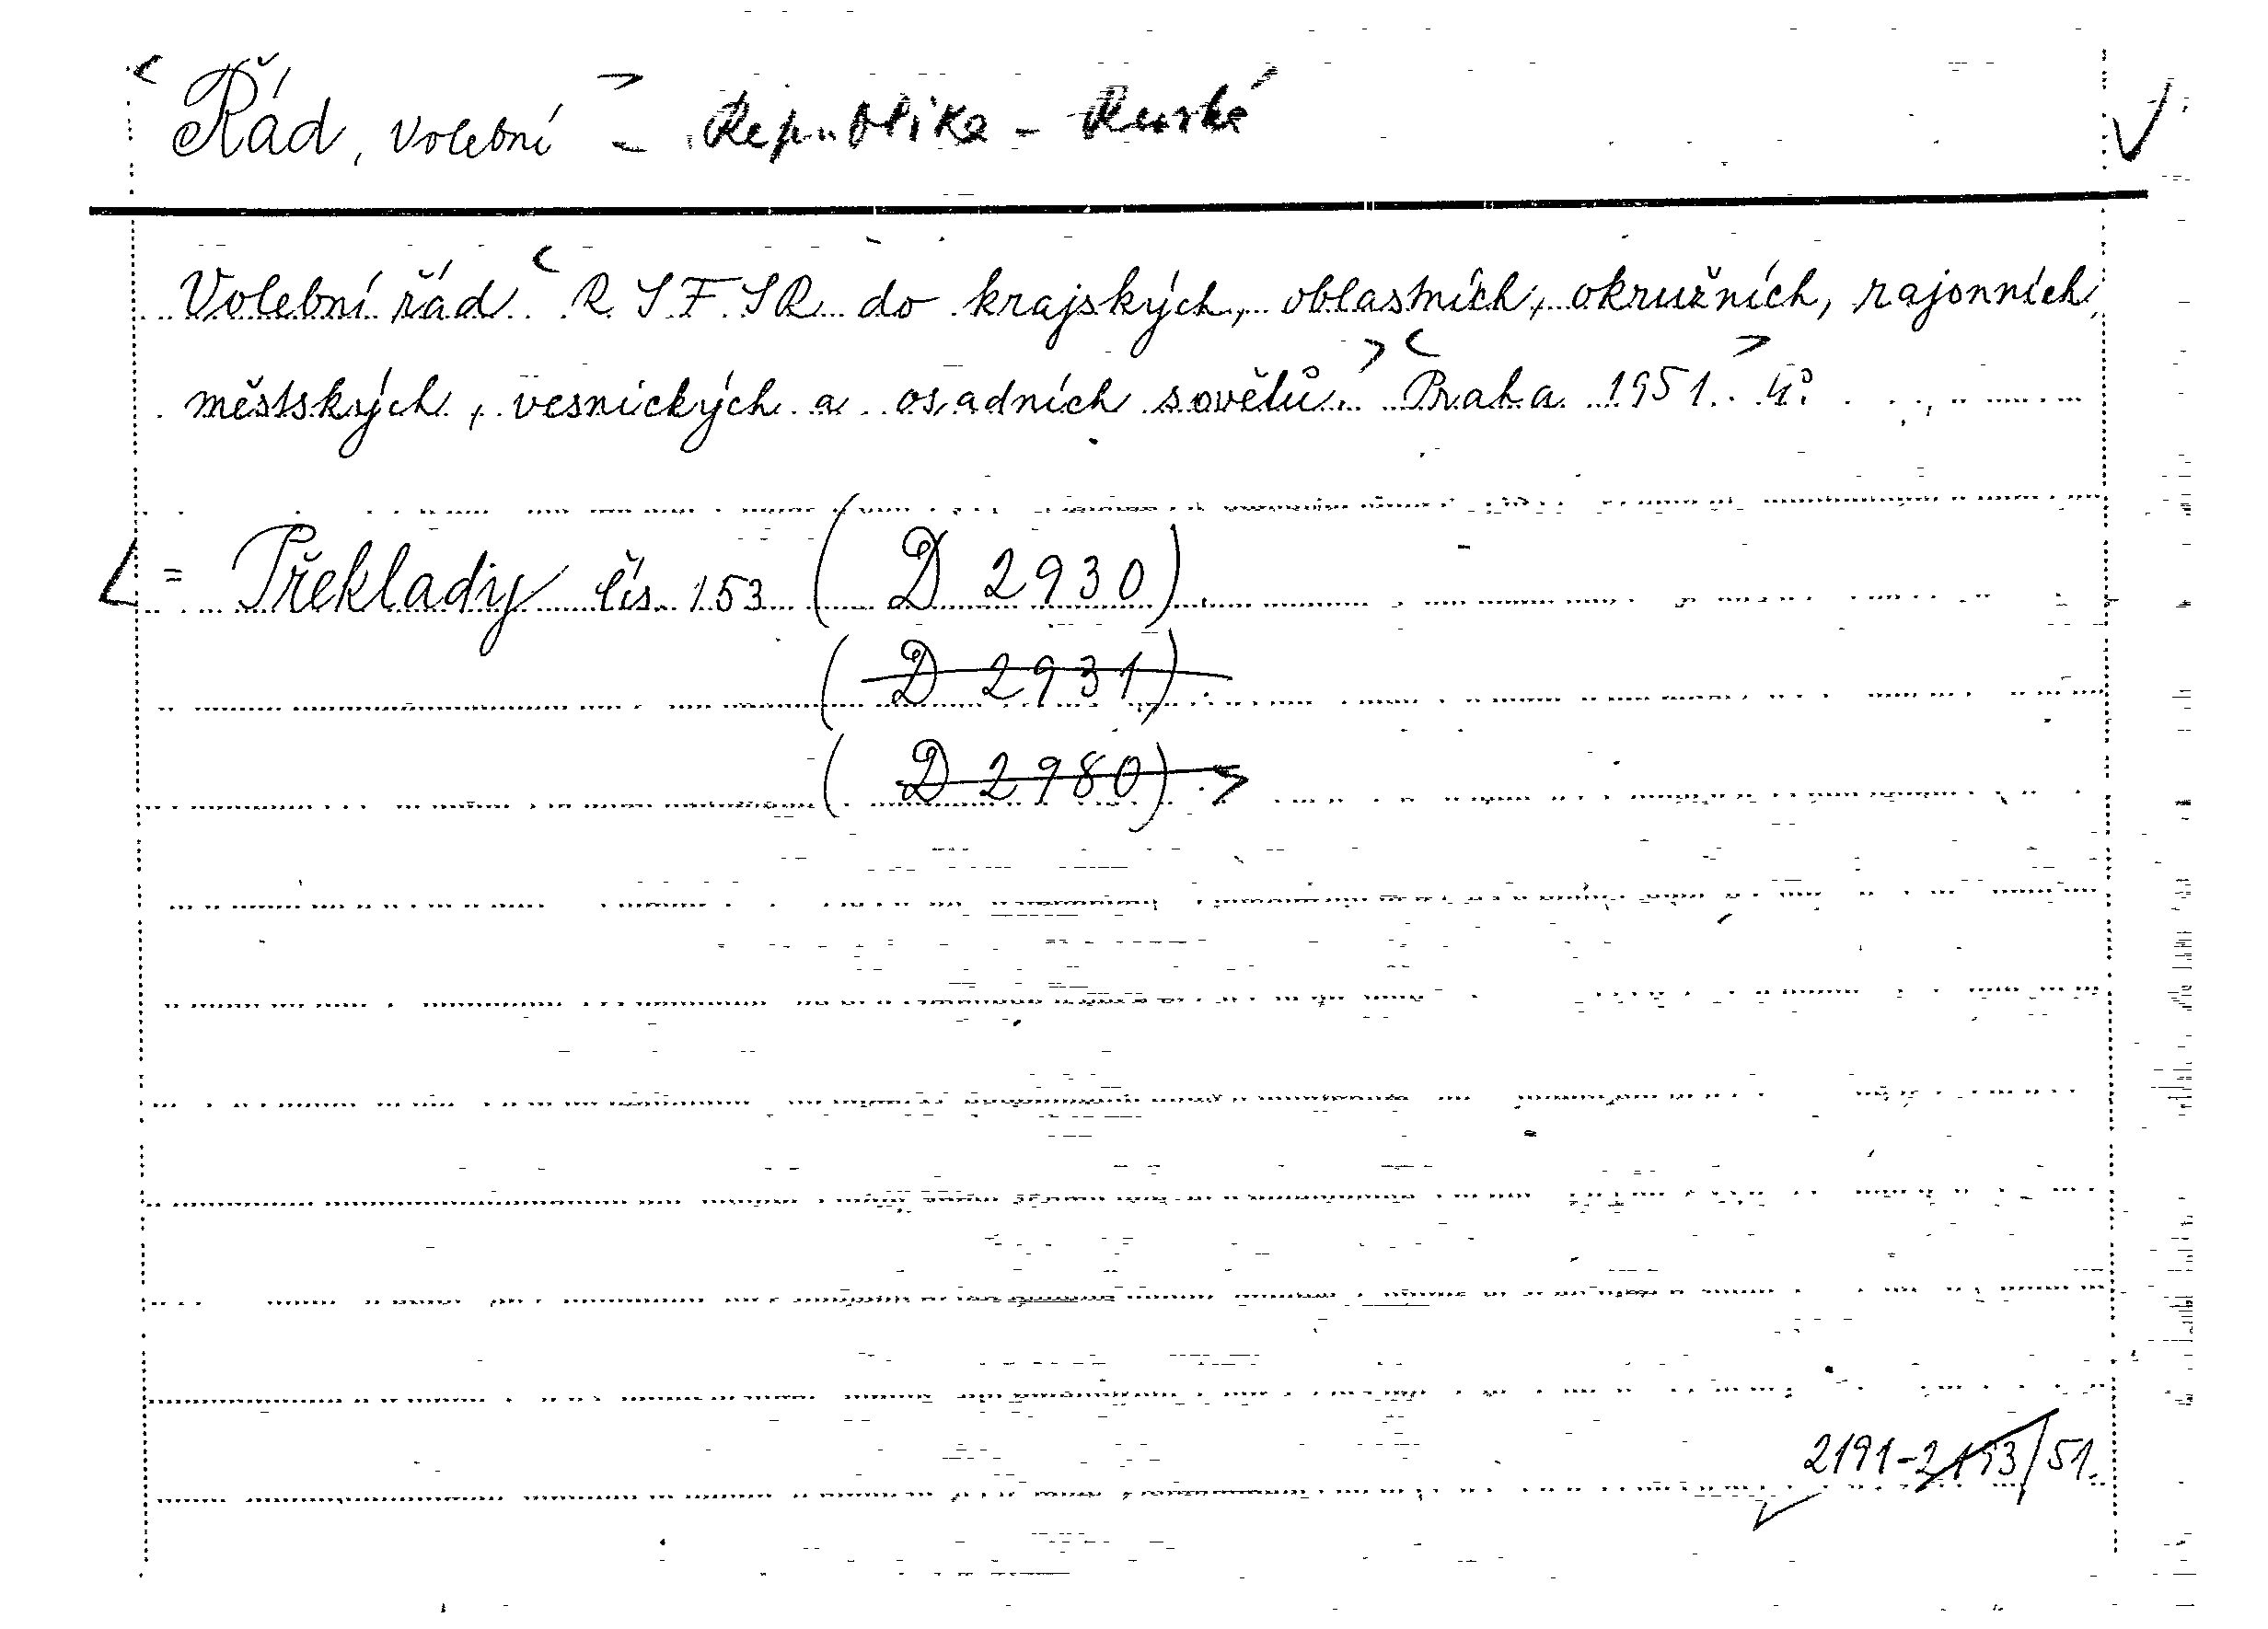 Řád, volební - Republika - Ruská
Volební řád R S F S R do krajských, oblastních, okružních, rajonních,
městských, vesnických a osadních sovětů. Praha 1951. 4°.
= Překlady čís. 153 (D 2930).
(D 2931).
(D 2980).
2191-2193/51.